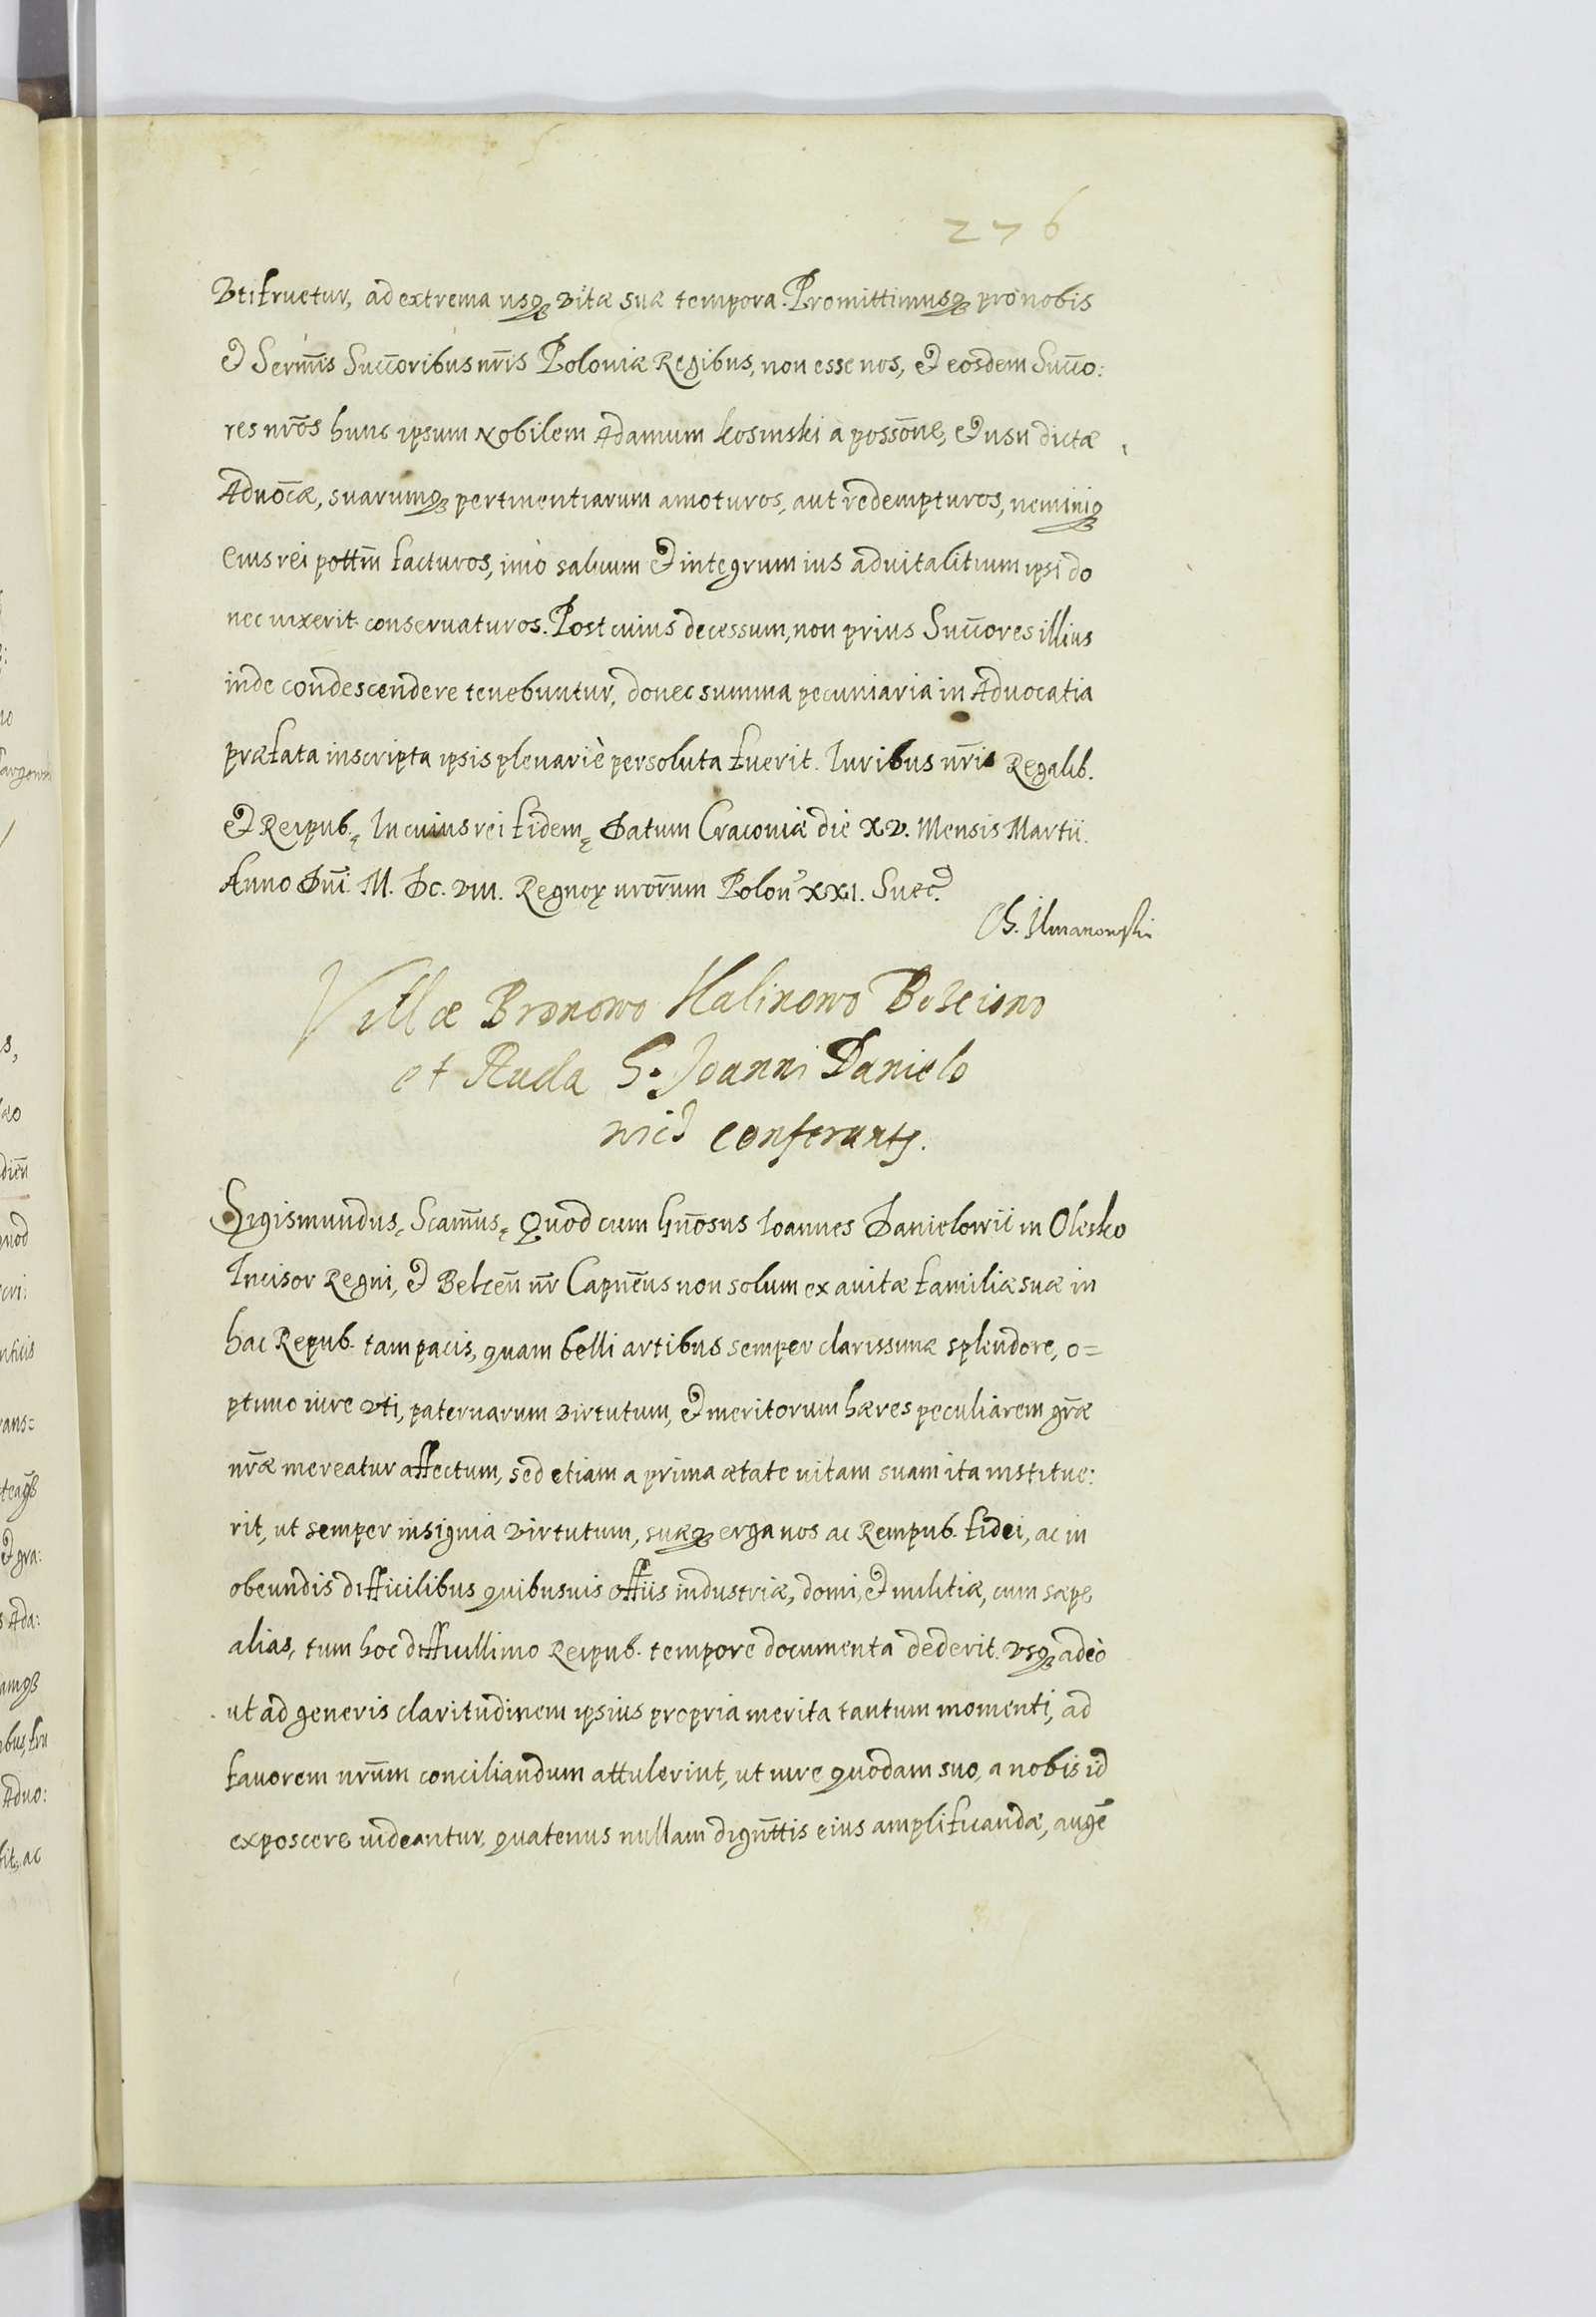 276
Utifruetur, ad extrema usq; vitæ suæ tempora. Promittimusq; pro nobis
et Serm̅is Succ̅oribus nr̅is Poloniæ Regibus, non esse nos, et eosdem Succ̅o:
res nr̅os hunc ipsum Nobilem Adamum Kosinski à poss̅one, et usu dictæ
Advoc̅æ, suarumq; pertinentiarum amoturos, aut redempturos, neminiq;
eius rei pott̅m facturos, imò saluum et integrum ius aduitalitium ipsi do
nec uixerit conseruaturos. Post cuius decessum, non prius Succ̅ores illius
inde condescendere tenebuntur, donec summa pecuniaria in Aduocatia
præfata inscripta ipsis plenariè persoluta fuerit. Iuribus nr̅is Regalib.
et Reipub. In cuius rei fidem Datum Cracouiæ die XV. Mensis Martii.
Anno Dn̅i. M. Dc. VIII. Regnoꝝ nror̅um Polon̅ XXI. Suec.
Villæ Bronowo Kalinowo
et Ruda G. Joanni Danielo
wicz conferunt.
Sigismundus, Scam̅us, Quod cum Gn̅osus Ioannes Danielowic̅ in Olesko
Incisor Regni, et Belzen̅ nr̅ Capn̅eus non solum ex auitæ familiæ suæ in
hac Repub. tam pacis, quam belli artibus semper clarissimæ splendore, o=
ptimo iure uti, paternarum virtutum, et meritorum hæres peculiarem gr̅æ
nr̅æ mereatur affectum, sed etiam a prima ætate uitam suam ita institue:
rit, ut semper insignia virtutum, suæq; erga nos ac Rempub. fidei, ac in
obeundis difficilibus quibusuis offiis industriæ, domi, et militiæ, cum sæpe
alias, tum hoc difficillimo Reipub. tempore documenta dederit. usq; adeò
ut ad generis claritudinem ipsius propria merita tantum momenti, ad
fauorem nr̅um conciliandum attulerint, ut iure quodam suo, a nobis id
exposcere uideantur, quatenus nullam dign̅ttis eius amplificandæ, auge̅